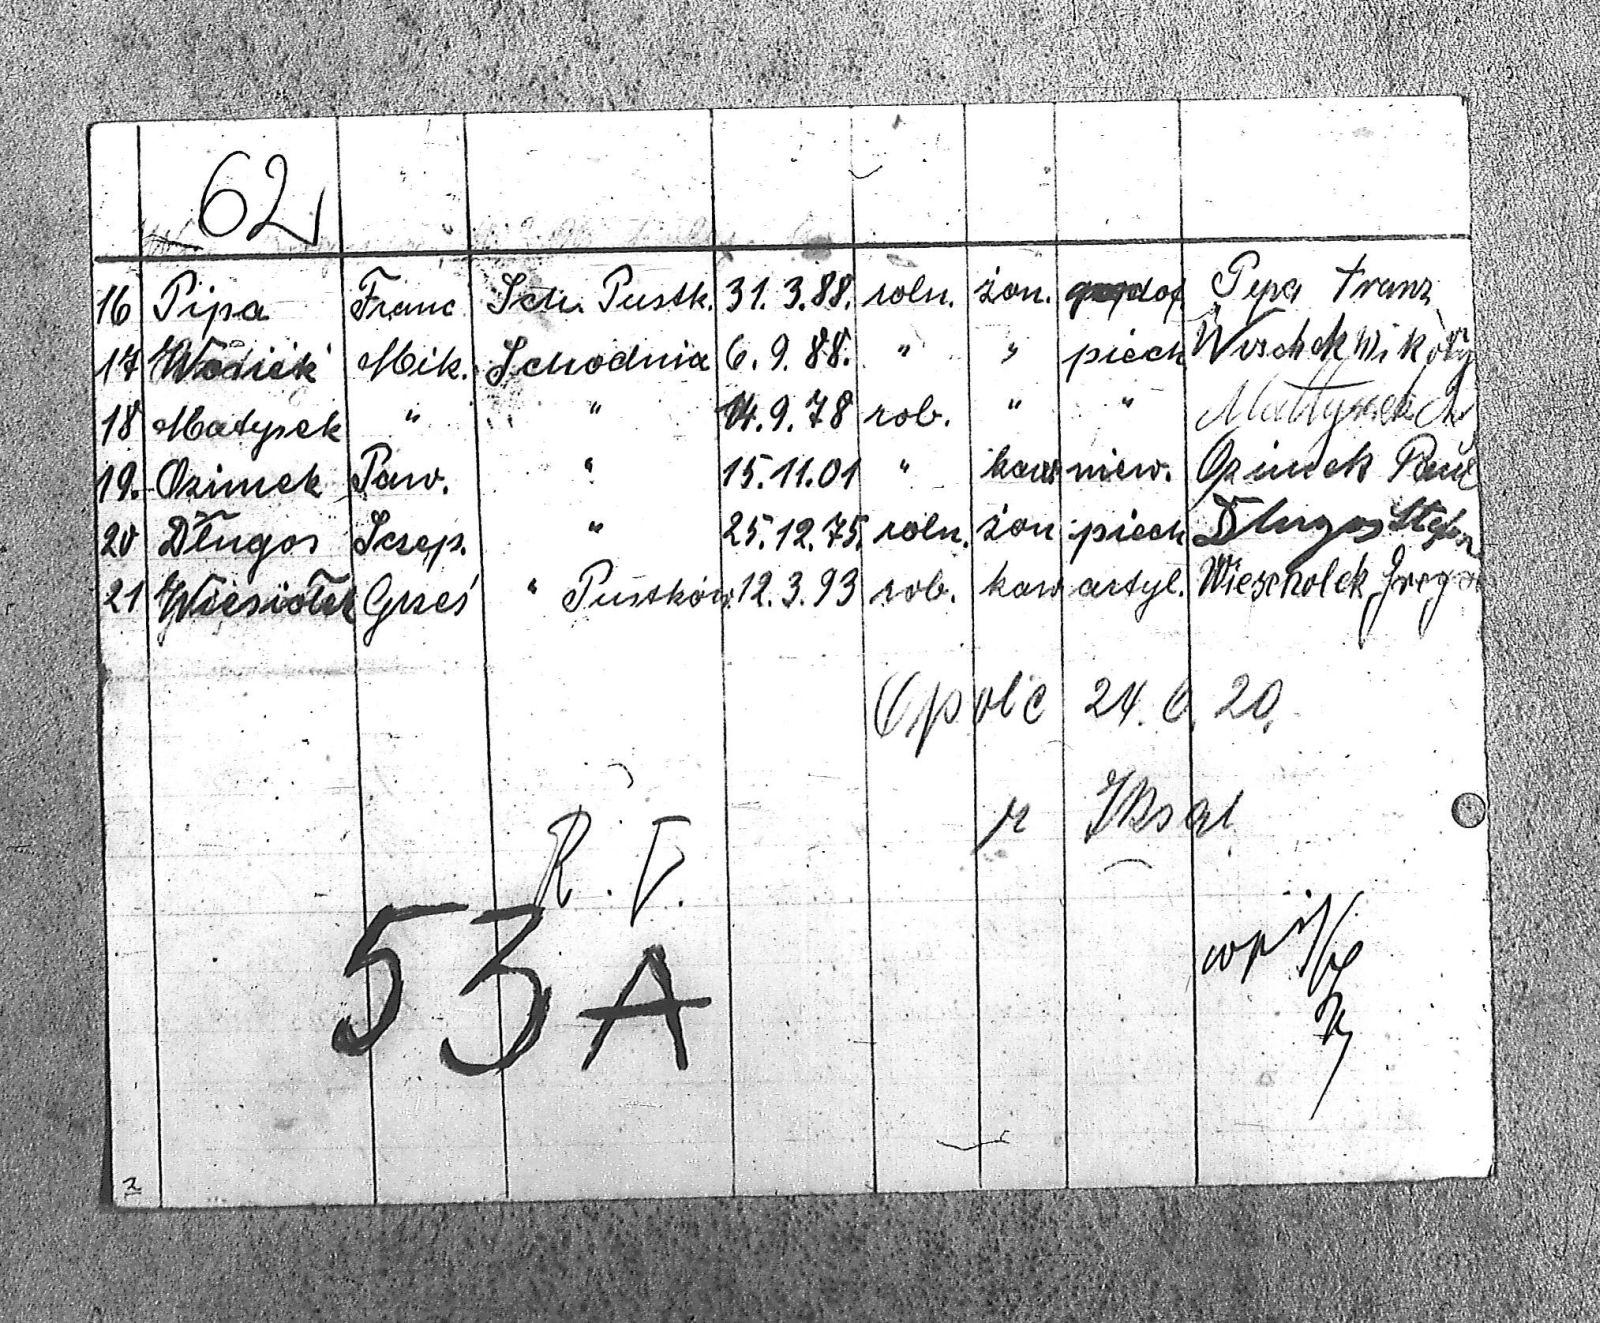 62
16 Pipa Franc Sch. Pustk. 31.3.88. roln. żon. Pypa Franz
17 Wosiek Mik. Schodnia 6.9.88. " " piech
18 Matysek " " 14.9.78 rob. " " Mattyssek
19. Ozimek Paw. " 15.11.01 " kaw niew. Ozimek Paul
20 Długos Scsep. " 25.12.75. roln. żon piech Dlugos Stefan
21 Wiesiołek Grześ " Pustków 12.3.93 rob. kaw artyl. Wiescholek
Opole 24.6.20.
R. V.
53A